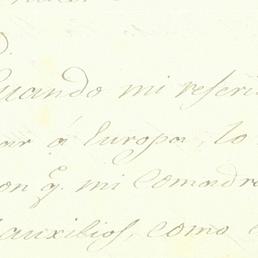 Cuando mi referi
ar á Europa, lo
on q. mi Comadre
auxilios, como